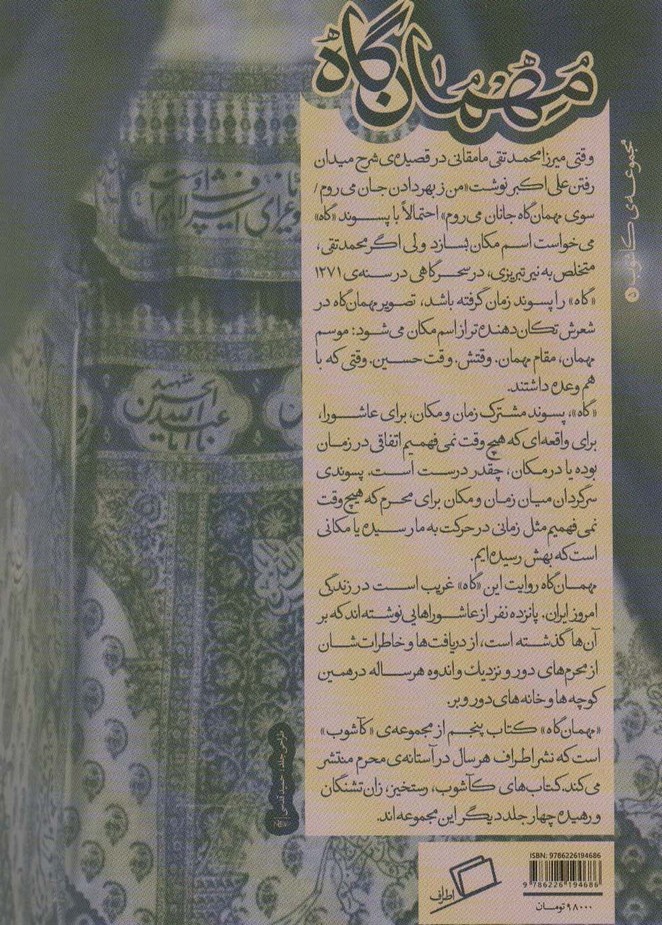 مهمان‌گاه
مجموعه‌ی کآشوب ۵
وقتی میرزا محمدتقی مامقانی در قصیده‌ی شرح میدان
رفتن علی اکبر نوشت «من ز بهر دادن جان می‌روم/
سوی مهمان‌گاه جانان می‌روم» احتمالاً با پسوند «گاه»
می‌خواست اسم مکان بسازد ولی اگر محمدتقی،
متخلص به نیر تبریزی، در سحرگاهی در سنه‌ی ۱۲۷۱
«گاه» را پسوند زمان گرفته باشد، تصویر مهمان‌گاه در
شعرش تکان‌دهنده‌تر از اسم مکان می‌شود: موسم
مهمان، مقام مهمان. وقتش. وقت حسین. وقتی که با
هم وعده داشتند.
«گاه»، پسوند مشترک زمان و مکان، برای عاشورا،
برای واقعه‌ای که هیچ وقت نمی‌فهمیم اتفاقی در زمان
بوده یا در مکان، چقدر درست است. پسوندی
سرگردان میان زمان و مکان برای محرم که هیچ وقت
نمی‌فهمیم مثل زمانی در حرکت به ما رسیده یا مکانی
است که بهش رسیده‌ایم.
مهمان‌گاه روایت این «گاه» غریب است در زندگی
امروز ایران. پانزده نفر از عاشوراهایی نوشته‌اند که بر
آن‌ها گذشته است، از دریافت‌ها و خاطرات‌شان
از محرم‌های دور و نزدیک و اندوه هرساله در همین
کوچه‌ها و خانه‌های دور و بر.
«مهمان‌گاه» کتاب پنجم از مجموعه‌ی «کآشوب»
است که نشر اطراف هر سال در آستانه‌ی محرم منتشر
می‌کند. کتاب‌های کآشوب، رستخیز، زان تشنگان
و رهیده چهار جلد دیگر این مجموعه‌اند.
طراحی جلد: حمید قدسی
اطراف
ISBN: 9786226194686
9 786226 194686
۹۸۰۰۰ تومان